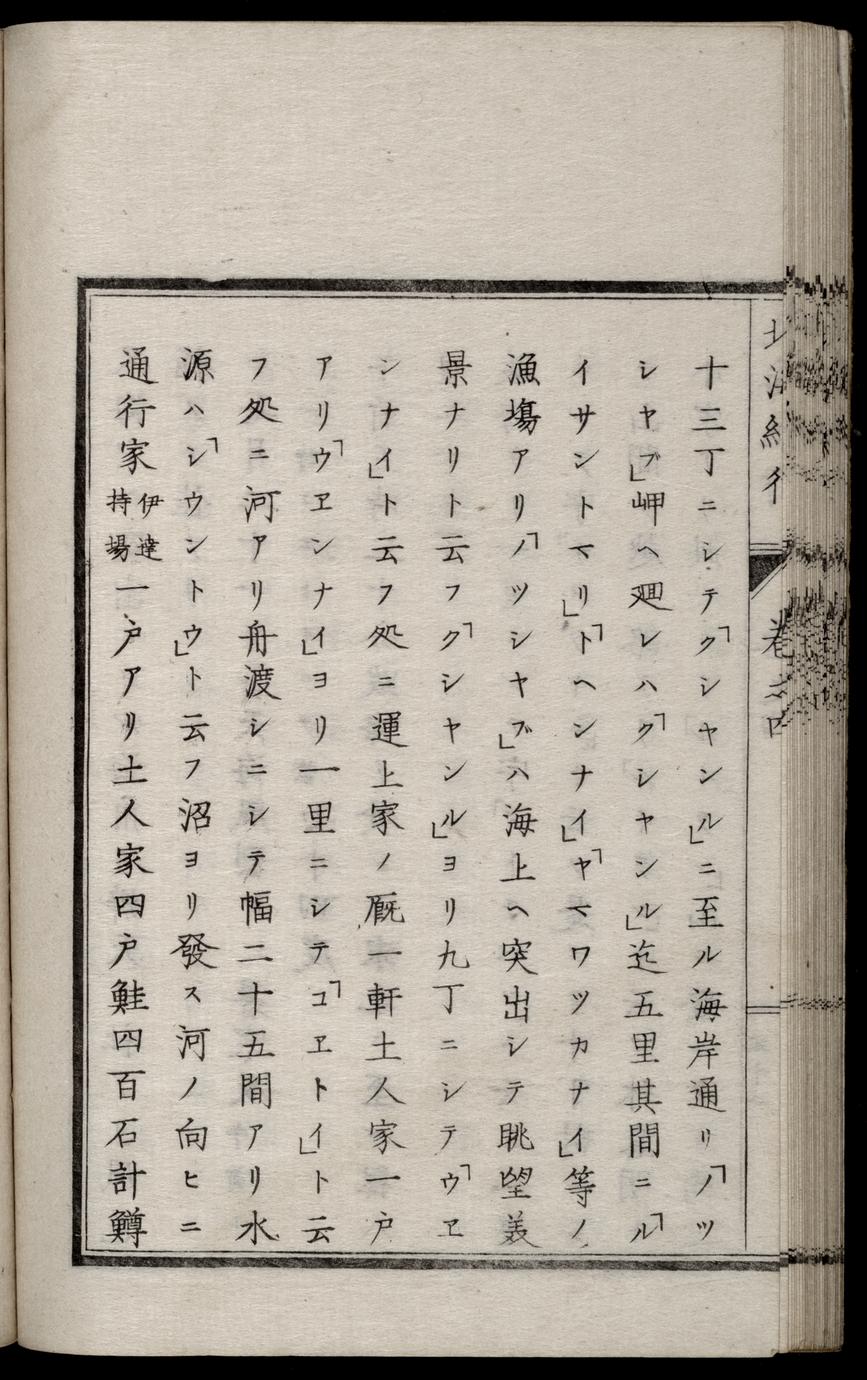 北海紀行 巻之四
十三丁ニシテ「クシヤンル」ニ至ル海岸通リ「ノツ
シヤブ」岬ヘ廻レハ「クシヤンル」迄五里其間ニ「ル
イサントマリ」「トヘンナイ」「ヤマワツカナイ」等ノ
漁塲アリ「ノツシヤブ」ハ海上ヘ突出シテ眺望美
景ナリト云フ「クシヤンル」ヨリ九丁ニシテ「ウヱ
ンナイ」ト云フ処ニ運上家ノ厩一軒土人家一戸
アリ「ウヱンナイ」ヨリ一里ニシテ「コヱトイ」ト云
フ処ニ河アリ舟渡シニシテ幅二十五間アリ水
源ハ「シウントウ」ト云フ沼ヨリ發ス河ノ向ヒニ
通行家伊達持場一戸アリ土人家四戸鮭四百石計鱒